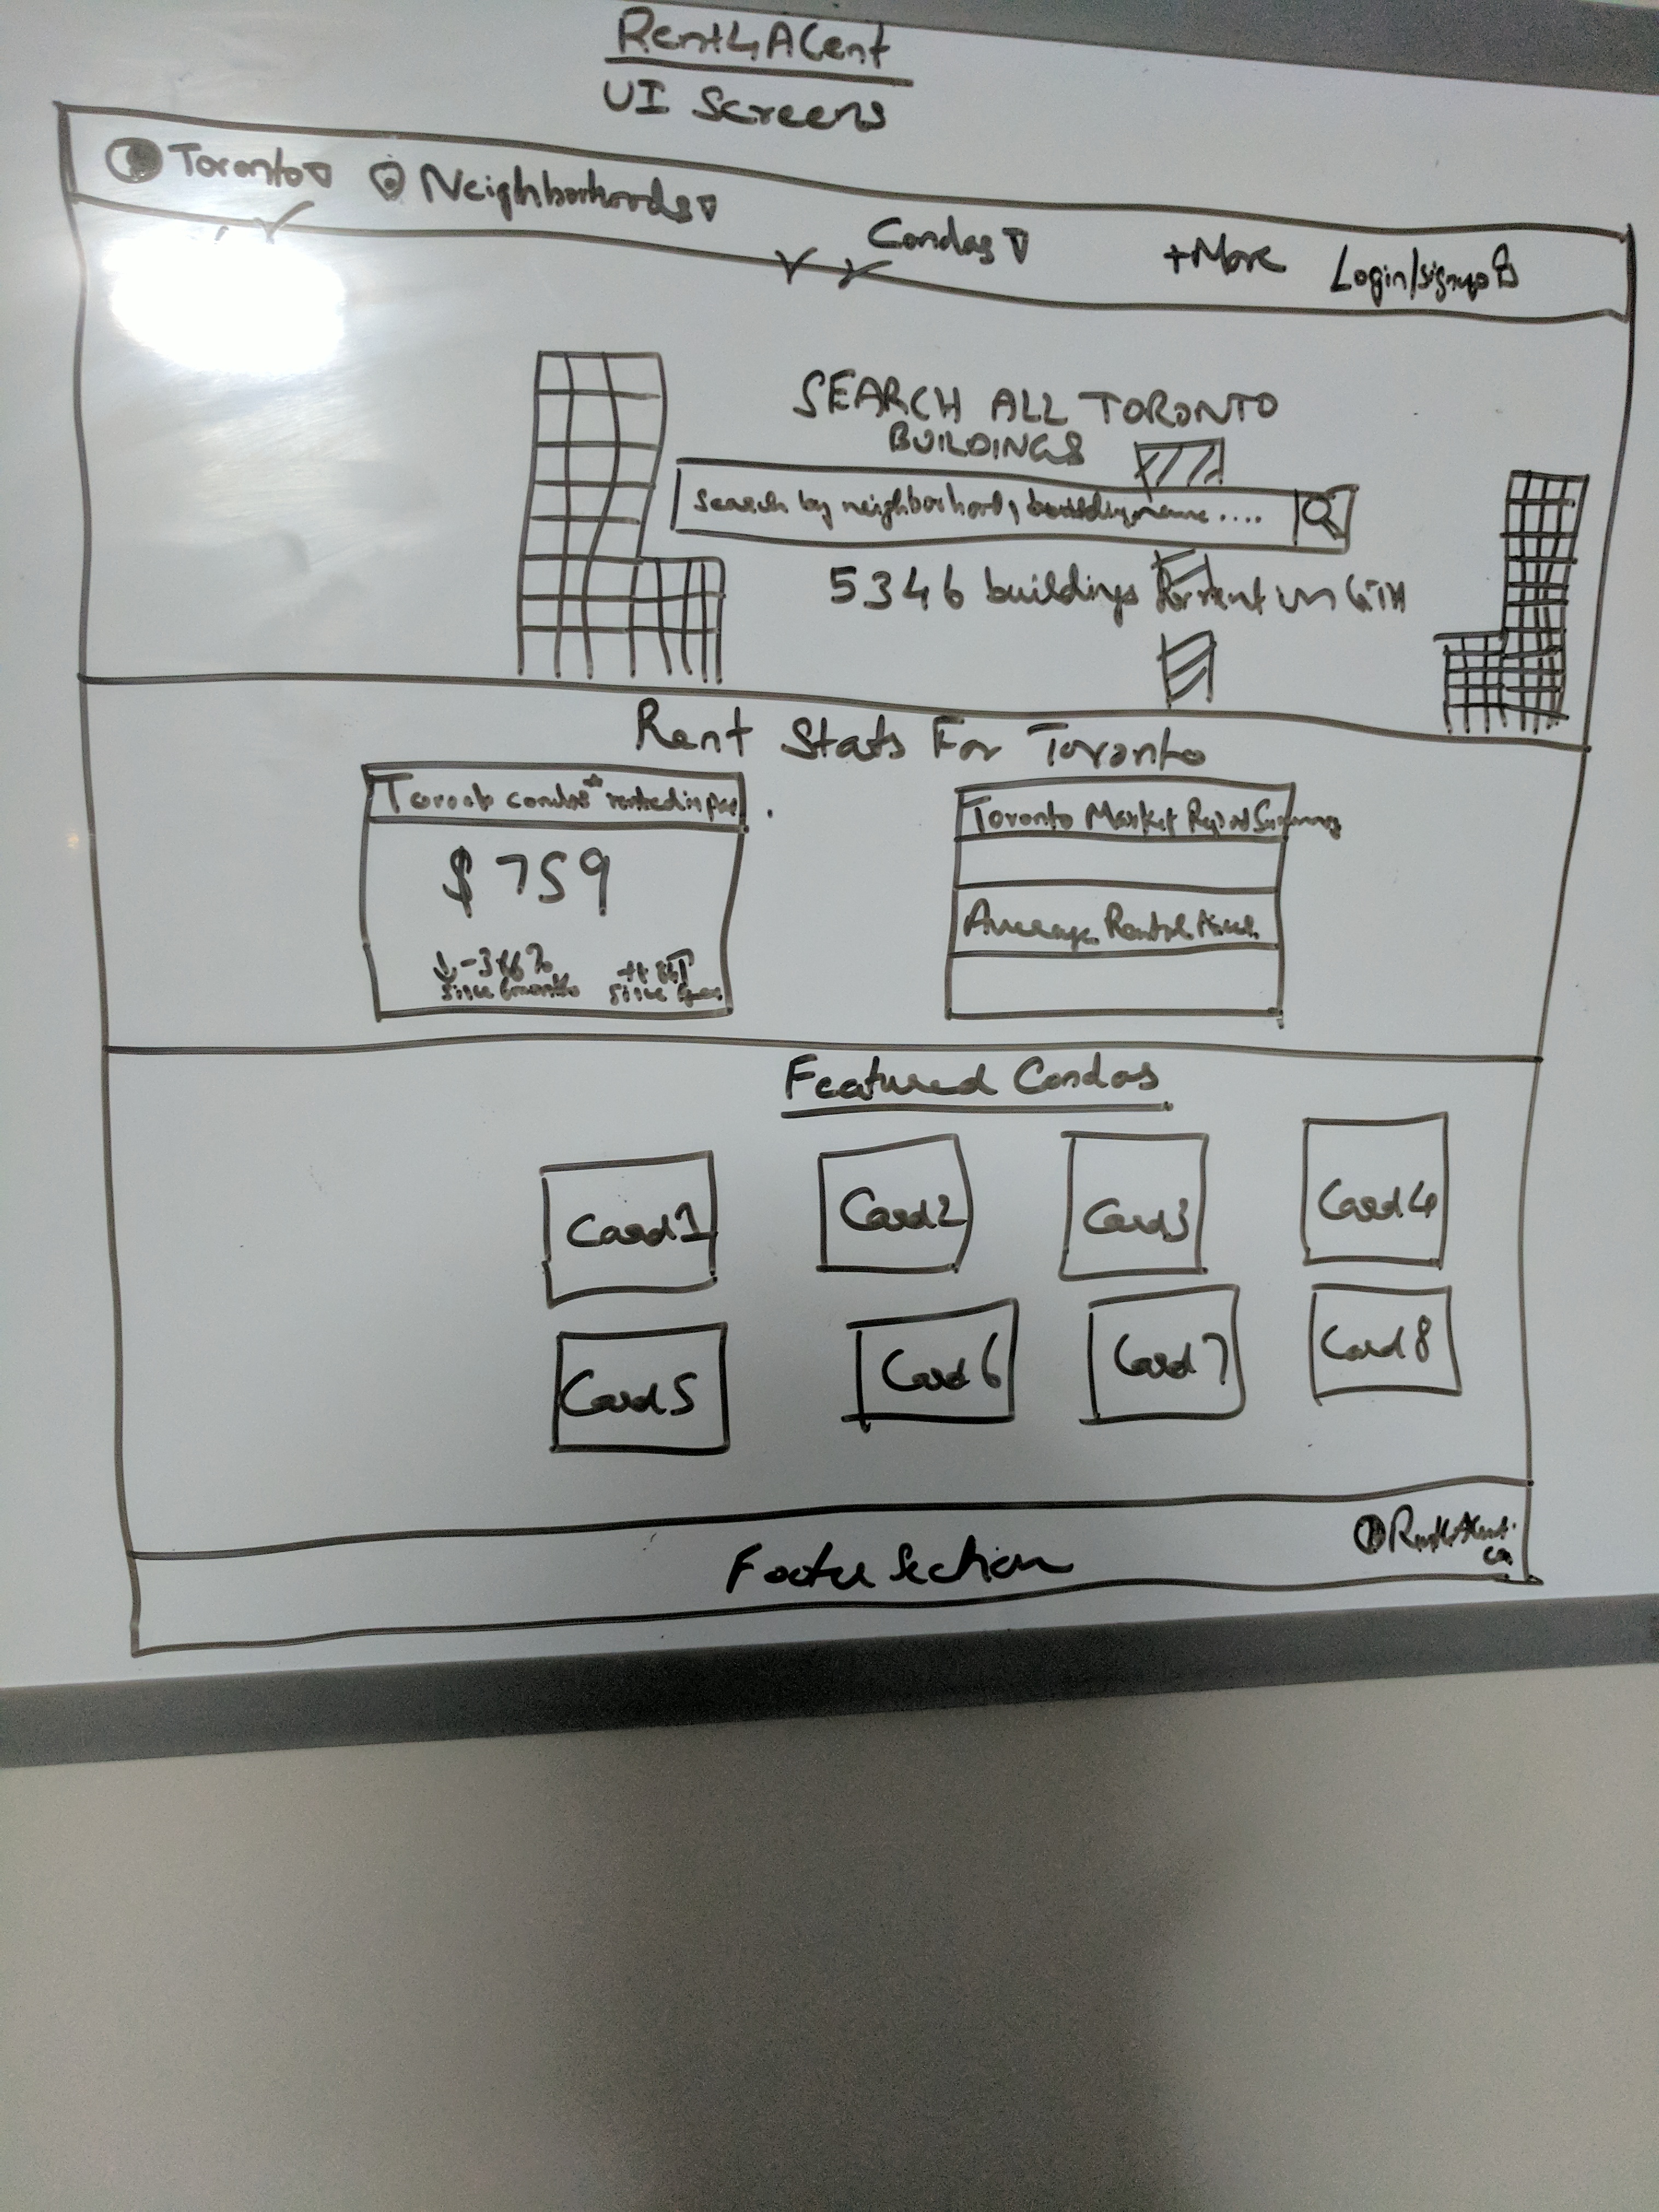 Rent4ACent
UI Screens
Toronto Neighborhoods Condos +More Login/Signup
SEARCH ALL TORONTO
BUILDINGS
Search by neighborhood, building name ....
5346 buildings for rent in GTA
Rent Stats For Toronto
Toronto condos rented in past
$759
since 6 months
since
Toronto Market Report Summary
Average Rental Price
Featured Condos
Card1 Card2 Card3 Card4
Card5 Card6 Card7 Card8
Footer Section
Rent4ACent.
ca